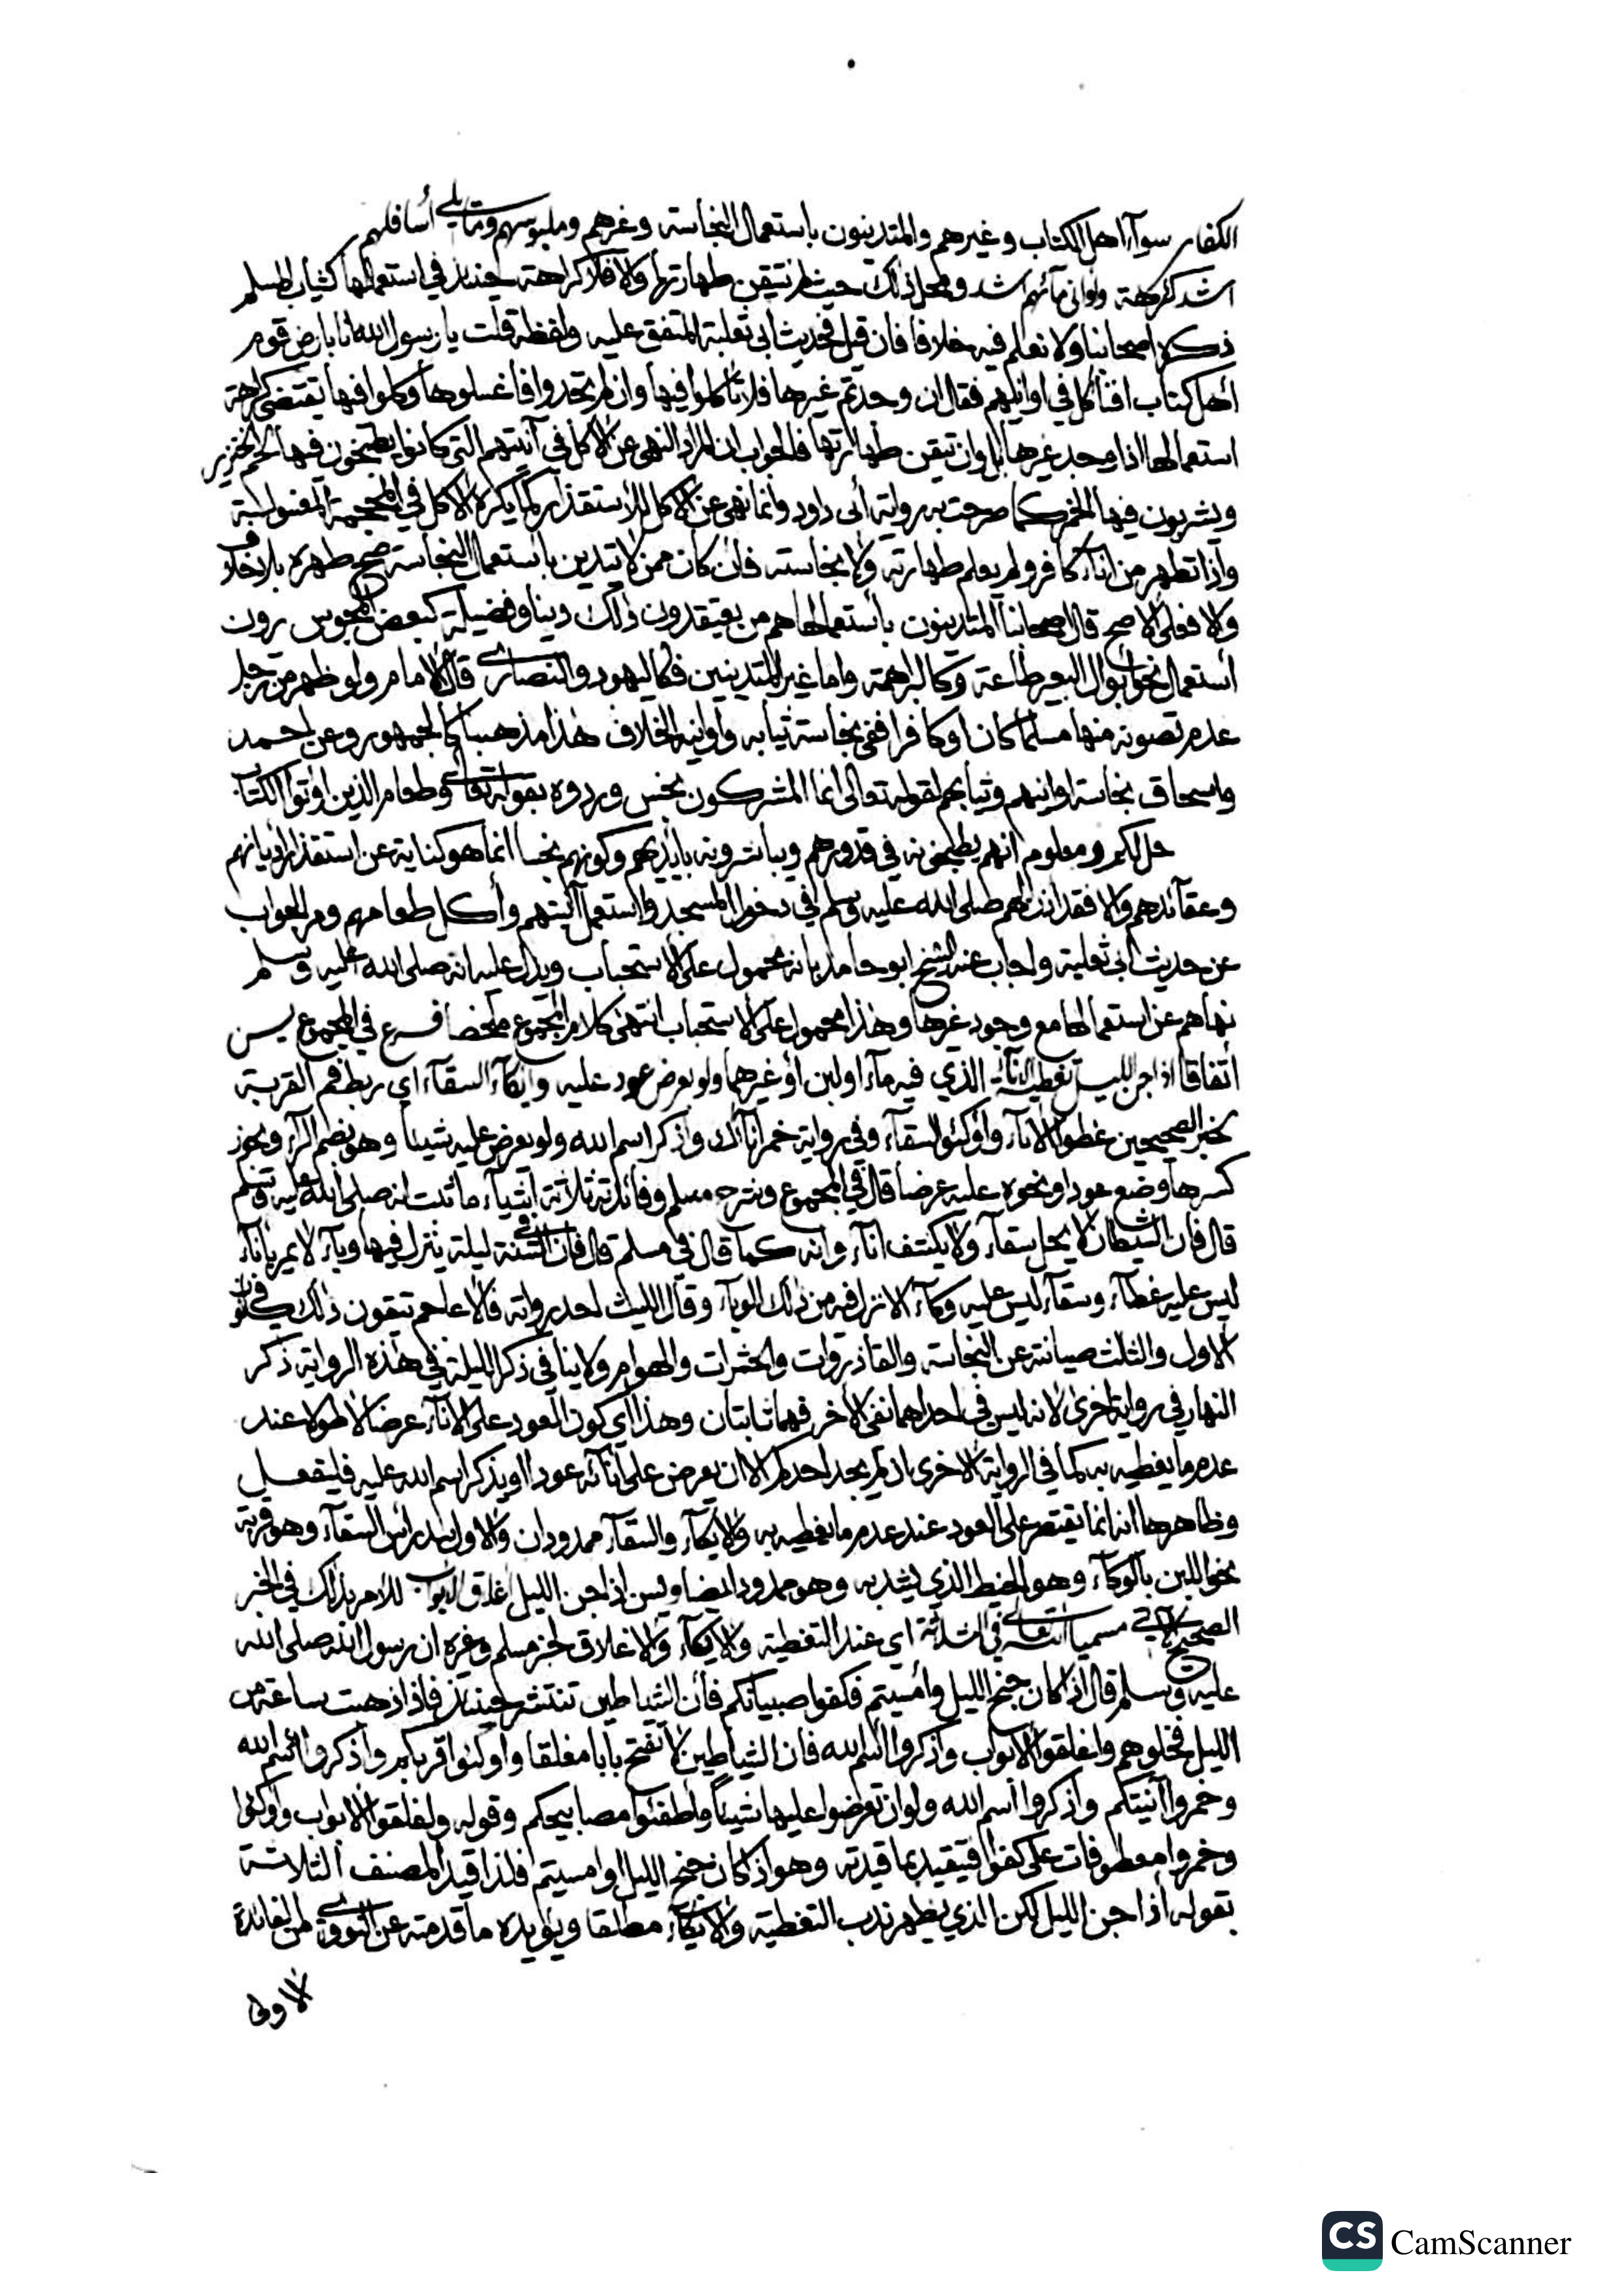 الكفار سوآء اهل الكتاب وغيرهم والمتدينون باستعمال النجاسة وغيرهم وملبوسهم وما يلي أسافلهم
اشد كراهة وأواني مائهم اشد ومحل ذلك حيث لم تتيقن طهارتها والا فلا كراهة حينئذ في استعمالها كثياب المسلم
ذكره اصحابنا ولا نعلم فيه خلافا فان قيل فحديث أبي ثعلبة المتفق عليه ولفظه قلت يا رسول الله انا بارض قوم
أهل كتاب افنأكل في اوانيهم فقال ان وجدتم غيرها فلا تأكلوا فيها وان لم تجدوا فاغسلوها وكلوا فيها يقتضي كراهة
استعمالها اذا وجد غيرها بل وان تيقن طهارتها فالجواب ان المراد النهي عن الاكل في آنيتهم التي كانوا يطبخون فيها لحم الخنزير
ويشربون فيها الخمر كما صرحت به رواية أبي داود وانما نهى عن الاكل للاستقذار كما يكره الاكل في المحجمة المغسولة
وإذا تطهر من اناء كافر ولم يعلم طهارته ولا نجاسته فان كان ممن لا يتدين باستعمال النجاسة صح طهره بلا خلاف
والا فعلى الاصح قال اصحابنا المتدينون باستعمالها هم من يعتقدون ذلك دينا وفضيلة كبعض المجوس يرون
أستعمال نحو ابوال البعير طاعة وكالبراهمة واما غير المتدينين فكاليهود والنصارى قال الامام ولو ظهر من رجل
عدم تصونه منها مسلما كان اوكافرا ففي نجاسة ثيابه وأوانيه الخلاف هذا مذهبنا كالجمهور وعن احمد
واسحاق نجاسة اوانيهم وثيابهم لقوله تعالى انما المشركون نجس وردوه بقوله تعالى وطعام الذين اوتوا الكتاب
حل لكم ومعلوم انهم يطبخونه في قدورهم ويباشرونه بأيديهم وكونهم نجسا انما هو كناية عن استقذار اديانهم
وعقآئدهم والا فقد اذن لهم صلى الله عليه وسلم في دخول المسجد واستعمل آنيتهم وأكل طعامهم ومر الجواب
عن حديث أبي ثعلبة واجاب عنه الشيخ ابو حامد بانه محمول على الاستحباب ويدل عليه انه صلى الله عليه وسلم
نهاهم عن استعمالها مع وجود غيرها وهذا محمول على الاستحباب انتهى كلام المجموع ملخصا فرع في المجموع يسن
اتفاقا اذا جن الليل تغطية الانآء الذي فيه مآء اولبن أوغيرهما ولو بعرض عود عليه وايكآء السقآء اي ربط فم القربة
لخبر الصحيحين غطوا الانآء وأوكئوا السقآء وفي رواية خمر انآئك واذكر اسم الله ولو تعرض عليه شيئا وهو بضم الرآء ويجوز
كسرها وضع عود اونحوه عليه عرضا قال في المجموع وشرح مسلم وفائدته ثلاثة اشيآء ما ثبت انه صلى الله عليه وسلم
قال فان الشيطان لا يحل سقآء ولا يكشف انآء وانه كما قال في مسلم قال فان في السنة ليلة ينزل فيها وبآء لا يمر بانآء
ليس عليه غطآء وسقآء ليس عليه وكآء الا نزل فيه من ذلك الوبآء وقال الليث احد رواته فالاعاجم يتقون ذلك في كانون
الاول والثالث صيانته عن النجاسة والقاذورات والحشرات والهوام ولا ينافي ذكر الليلة في هذه الرواية ذكر
النهار في رواية اخرى لانه ليس في احداهما نفي الآخر فهما ثابتان وهذا اي كون العود على الانآء عرضا لا طولا عند
عدم ما يغطيه به كما في الرواية الاخرى ان لم يجد احدكم الا ان يعرض على انآئه عودا اويذكر اسم الله عليه فليفعل
وظاهرها انه انما يقتصر على العود عند عدم ما يغطيه به والايكآء والسقآء ممدودان والاول شد رأس السقآء وهو قربة
نحو اللبن بالوكآء وهو الخيط الذي يشد به وهو ممدود ايضا ويسن اذا جن الليل اغلاق الابواب للامر بذلك في الخبر
الصحيح الآتي مسميا الله تعالى في الثلاثة اي عند التغطية والايكآء والاغلاق لخبر مسلم وغيره ان رسول الله صلى الله
عليه وسلم قال اذا كان جنح الليل وأمسيتم فكفوا صبيانكم فأن الشياطين تنتشر حينئذ فاذا ذهبت ساعة من
الليل فخلوهم واغلقوا الابواب واذكروا اسم الله فان الشياطين لا تفتح بابا مغلقا واوكئوا قربكم واذكروا اسم الله
وخمروا آنيتكم واذكروا أسم الله ولو ان تعرضوا عليها شيئاً واطفئوا مصابيحكم وقوله واغلقوا الابواب واوكئوا
وخمروا معطوفات على كفوا فيتقيد بما قيد به وهو اذا كان جنح الليل اوامسيتم فلذا قيد المصنف الثلاثة
بقوله أذا جن الليل لكن الذي يظهر ندب التغطية والايكآء مطلقا ويؤيده ما قدمته عن النووي من الفائدة
الاولى
CS CamScanner